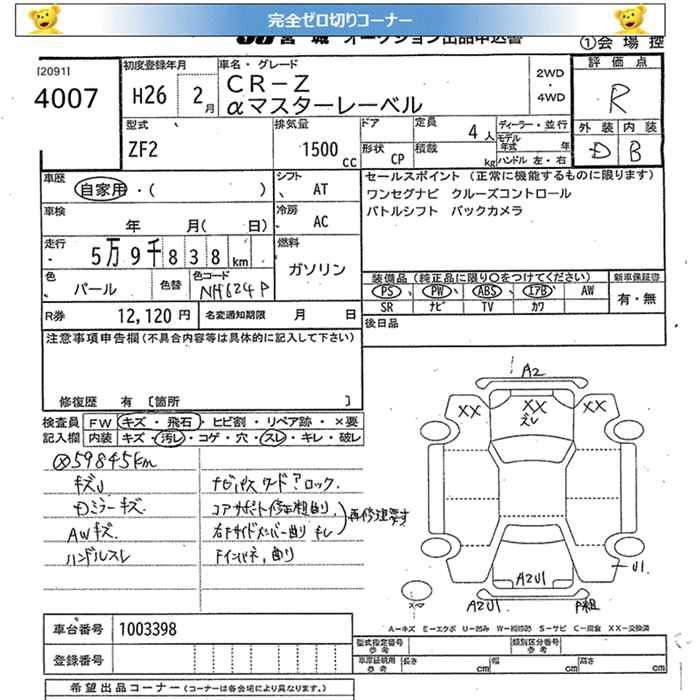 完全ゼロ切りコーナー
JU宮城 オークション出品申込書
①会場控
[2091]
4007
初度登録年月
H26 2月
車名・グレード
CR-Z
αマスターレーベル
2WD
・
4WD
評価点
R
外装 内装
D B
型式
ZF2
排気量
1500cc
ドア
形状 CP
定員 4人
積載 kg
ディーラー・並行
モデル年式 年
ハンドル 左・右
車歴
自家用・( )
シフト
AT
セールスポイント(正常に機能するものに限ります)
ワンセグナビ クルーズコントロール
パドルシフト バックカメラ
車検
年 月( 日)
冷房
AC
走行
5万9千838km
燃料
ガソリン
色
パール
色替
色コード
NH624P
装備品(純正品に限り○をつけてください)
PS PW ABS エアB AW
SR ナビ TV カワ
新車保証書
有・無
R券 12,120円
名変通知期限 月 日
後日品
注意事項申告欄(不具合内容等は具体的に記入して下さい)
修復歴 有 [箇所 ]
検査員記入欄
FW キズ・飛石・ヒビ割・リペア跡・×要
内装 キズ・汚レ・コゲ・穴・スレ・キレ・破レ
※59845km
キズU
Dミラーキズ
AWキズ
ハンドルスレ
ナビパスワードロック.
コアサポート修正粗曲り.
右Fサイドメンバー曲り
Fインパネ,曲り
再修理要す
A2
XX XX XX
A2U1
U1.
A2U1
P粗
スペア
A-キズ E-エクボ U-凹み W-補修跡 S-サビ C-腐食 XX-交換済
車台番号 1003398
登録番号
型式指定番号 参考
類別区分番号 参考
車庫証明用 参考 長さ cm 幅 cm 高さ cm
希望出品コーナー(コーナーは各会場により異なります。)